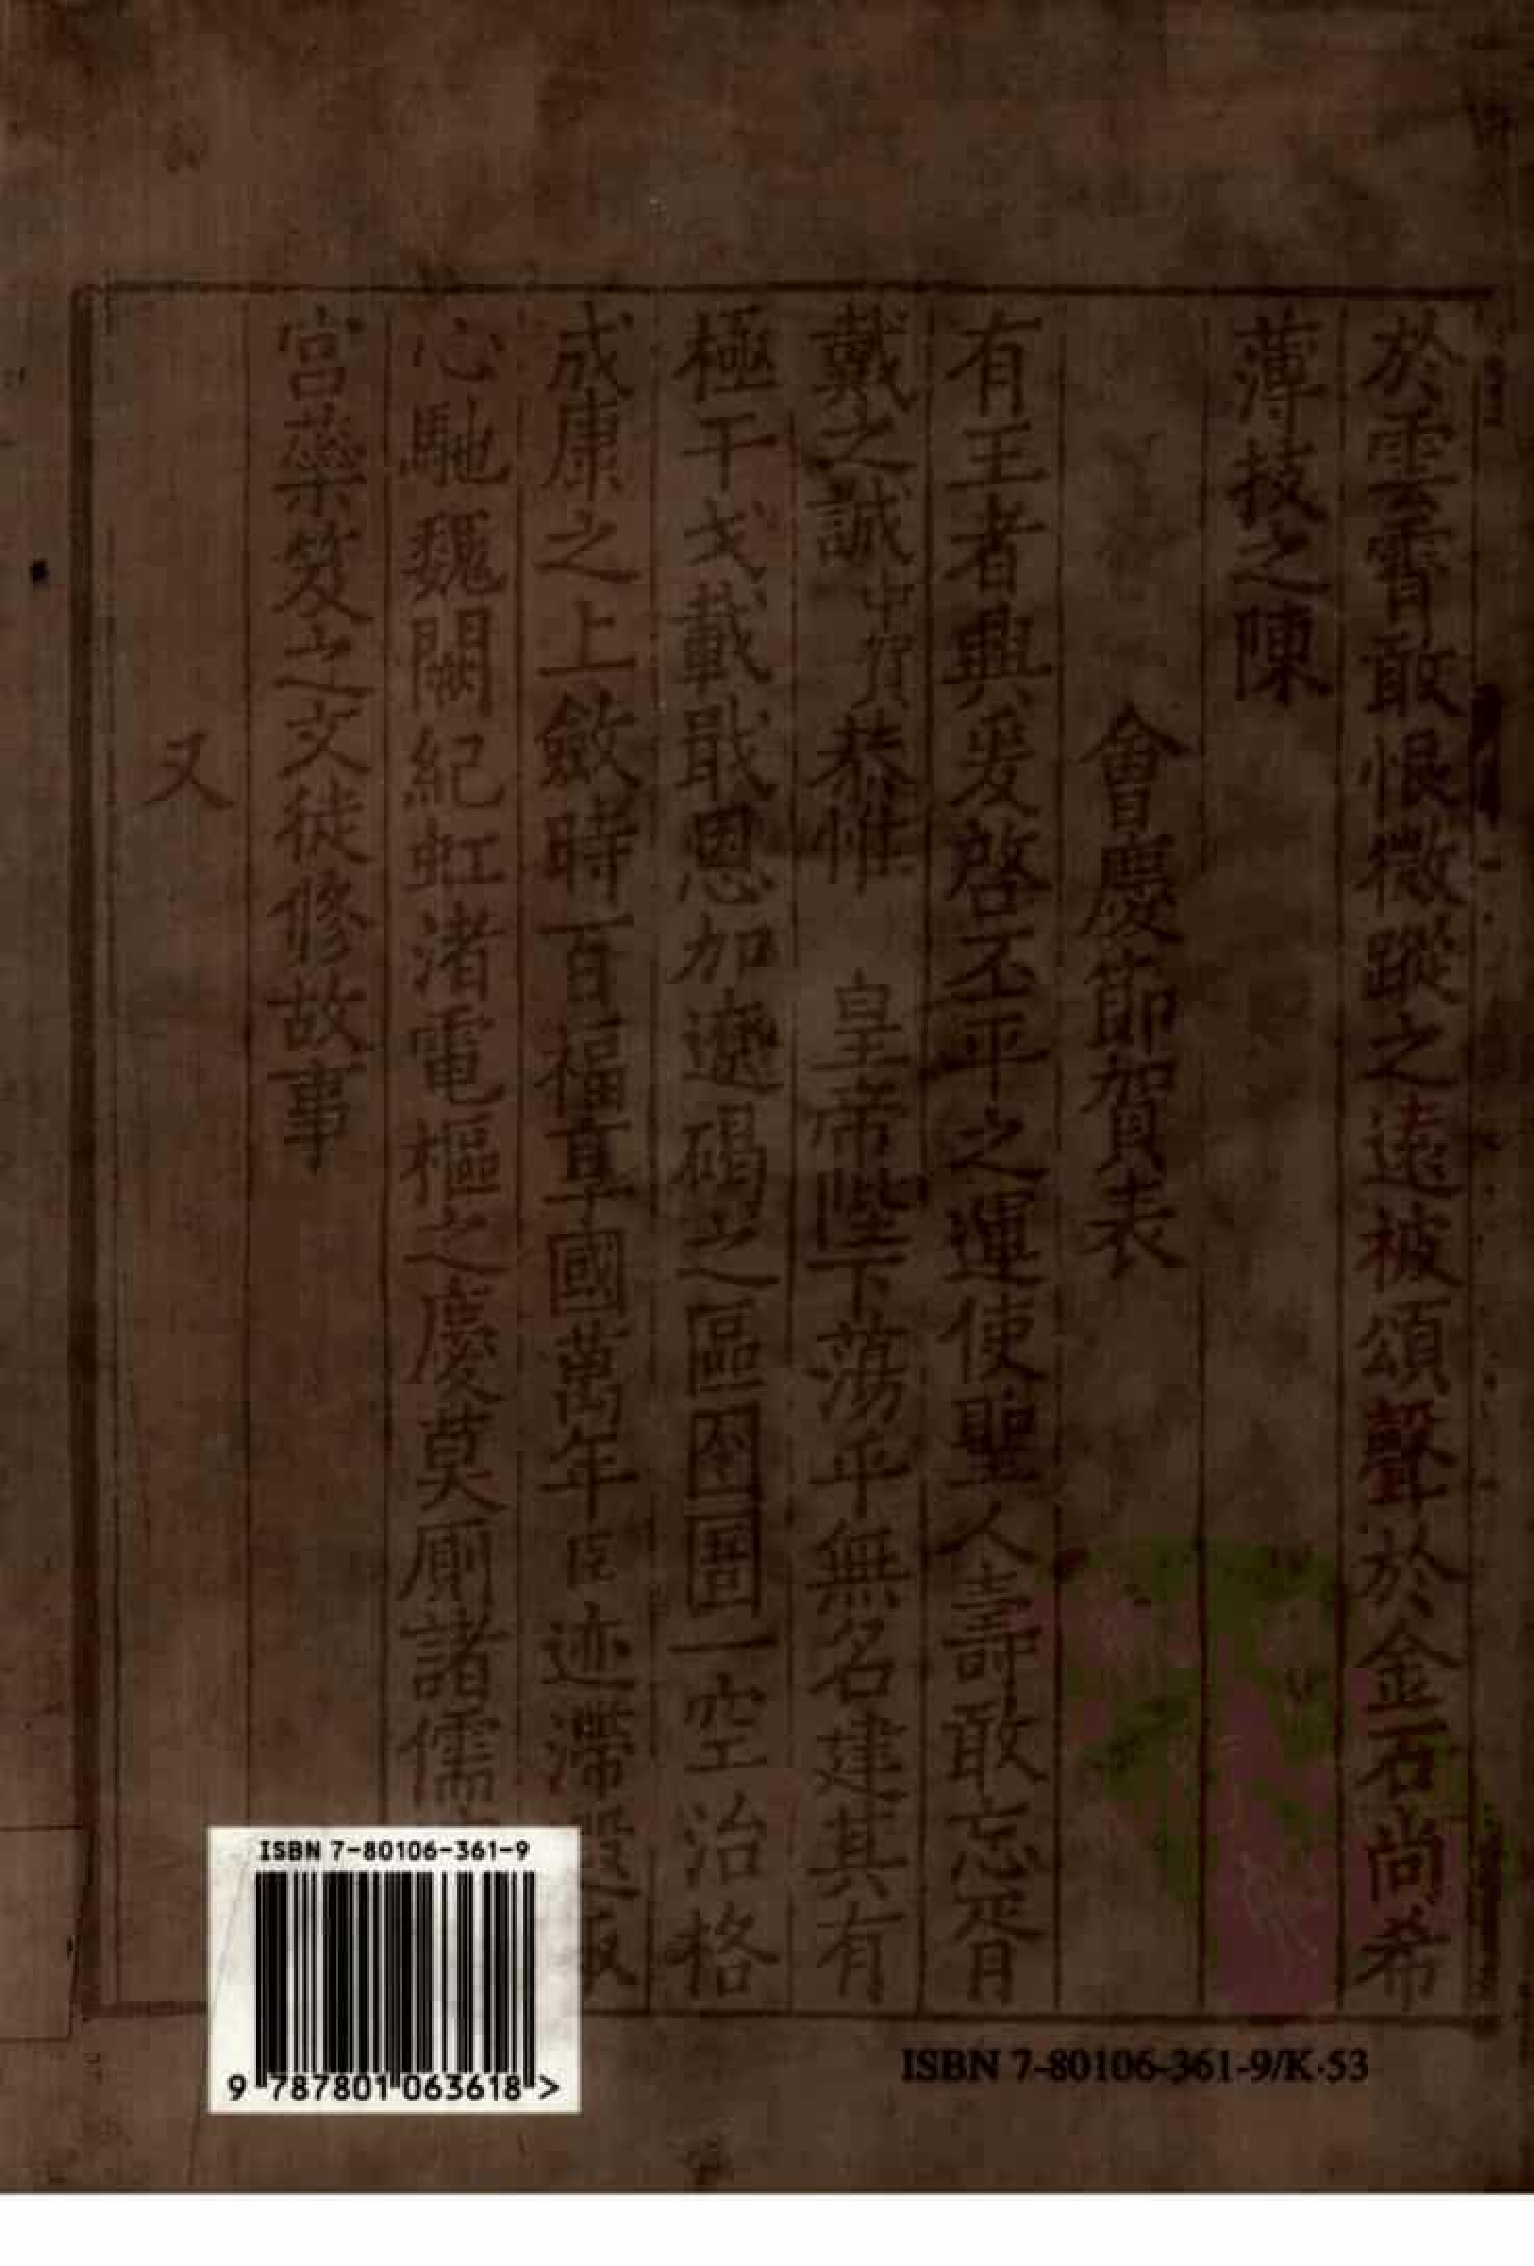 於雲霄敢恨微蹤之遠被頌聲於金石尚希
薄技之陳
會慶節賀表
有王者興爰啓丕平之運使聖人壽敢忘胥
戴之誠中賀恭惟 皇帝陛下蕩乎無名建其有
極干戈載戢恩加邊碣之區囹圄一空治格
成康之上斂時百福享國萬年臣迹滯
心馳魏闕紀虹渚電樞之慶莫厠諸儒
宮藥笈之文徒修故事
又
ISBN 7-80106-361-9
9 787801 063618 >
ISBN 7-80106-361-9/K·53